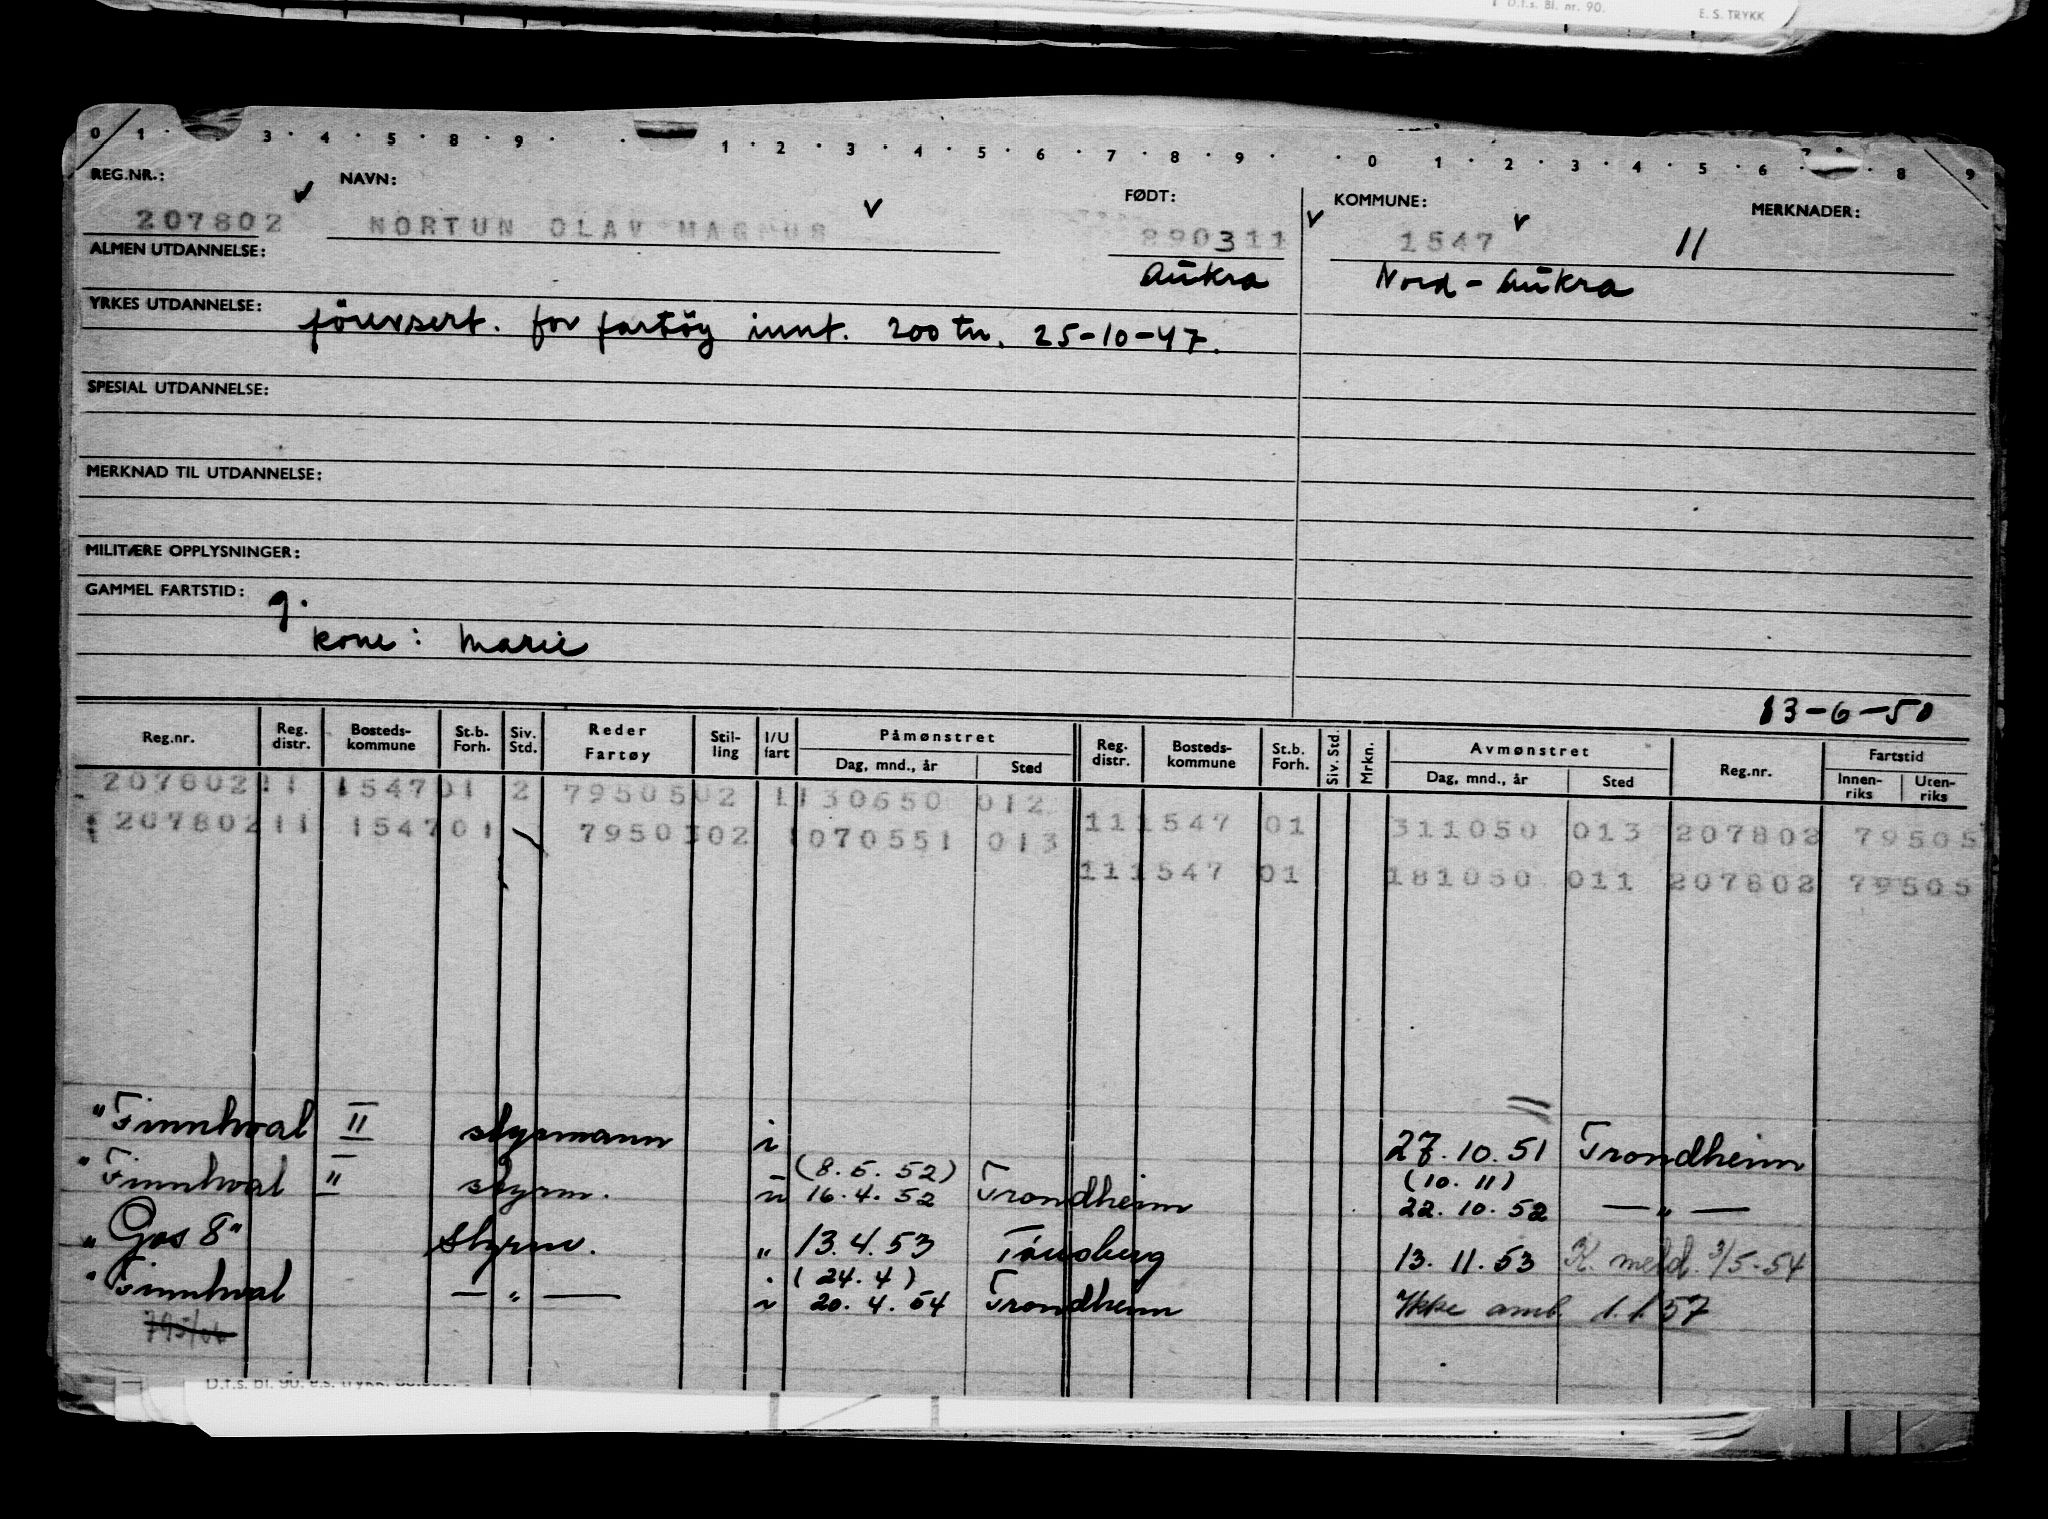 D.f.s. Bl. nr. 90. E. S. TRYKK
0 1 · 3 · 4 · 5 · 8 · 9 · · 1 · 2 · 3 · 4 · 5 · 6 · 7 · 8 · 9 · · 0 1 · 2 · 3 · 4 · 5 · 6 · 8 9
REG.NR.: NAVN: FØDT: KOMMUNE: MERKNADER:
207802 NORTUN OLAV MAGNUS 890311 1547 11
ALMEN UTDANNELSE: Aukra Nord-Aukra
YRKES UTDANNELSE: förersert. for fartöy innt. 200 tn. 25-10-47.
SPESIAL UTDANNELSE:
MERKNAD TIL UTDANNELSE:
MILITÆRE OPPLYSNINGER:
GAMMEL FARTSTID: g.
kone: Marie
13-6-50
Reg.nr. Reg. distr. Bosteds-kommune St.b. Forh. Siv. Std. Reder Fartøy Stil-ling I/U fart Påmønstret Dag, mnd., år Sted Reg. distr. Bosteds-kommune St.b. Forh. Siv. Std. Mrkn. Avmønstret Dag, mnd., år Sted Reg.nr. Fartstid Innen-riks Uten-riks
207802 11 1547 01 2 7950502 1 130650 012
207802 11 1547 01 7950302 1 070551 013 11 1547 01 311050 013 207802 79505
11 1547 01 181050 011 207802 79505
"Finnhval II styrmann i 27.10.51 Trondheim
"Finnhval II styrm. u (8.5.52) 16.4.52 Trondheim (10.11) 22.10.52 — " —
"Gos 8" styrm. " 13.4.53 Tönsberg 13.11.53 K. meld. 3/5-54
"Finnhval — " — i (24.4) 20.4.54 Trondheim Ikke omb. 1.1.57
D.f.s. bl. 90. e.s. trykk.